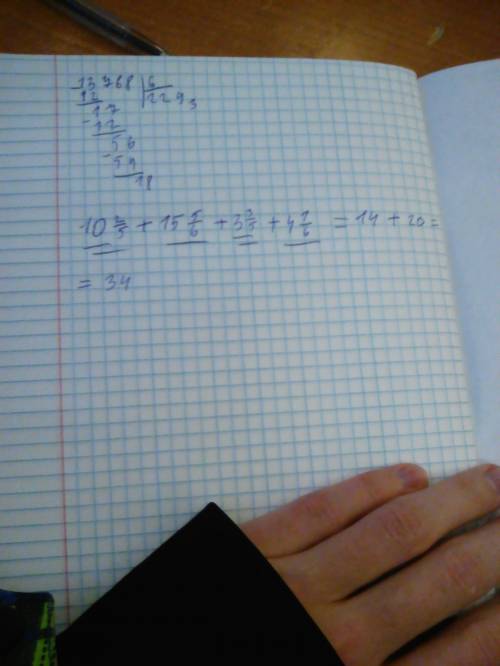 13768 | 6
12 2293
17
- 12
56
- 54
18
10 2/5 + 15 5/6 + 3 3/5 + 4 1/6 = 14 + 20 =
= 34